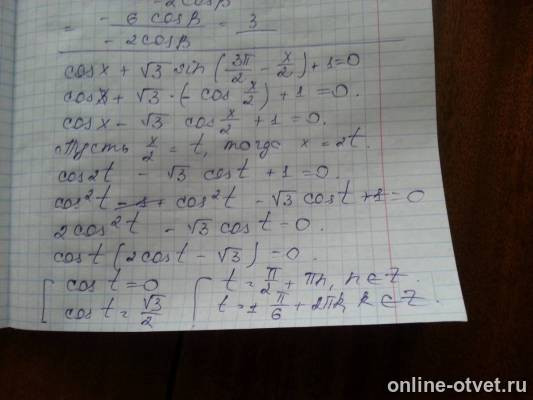 -2cosβ
= - 6 cosβ / - 2cosβ = 3
cosx + √3 sin(3π/2 - x/2) + 1 = 0
cosx + √3 · (- cos x/2) + 1 = 0.
cosx - √3 cos x/2 + 1 = 0.
Пусть x/2 = t, тогда x = 2t.
cos2t - √3 cost + 1 = 0.
cos²t - 1 + cos²t - √3 cost + 1 = 0
2cos²t - √3 cost = 0.
cost (2cost - √3) = 0.
[ cost = 0 [ t = π/2 + πn, n ∈ Z.
cost = √3/2 t = ± π/6 + 2πk, k ∈ Z.
online-otvet.ru